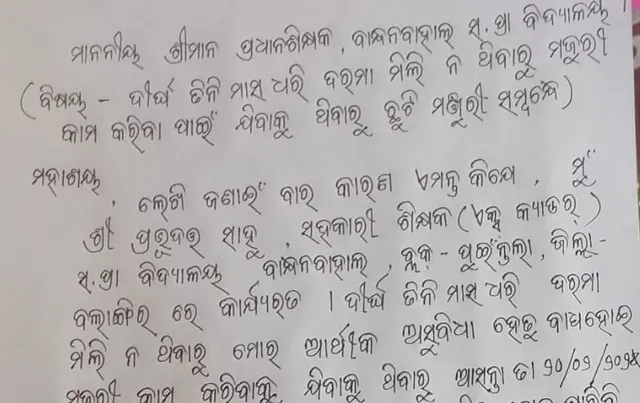 ମାନନୀୟ ଶ୍ରୀମାନ ପ୍ରଧାନଶିକ୍ଷକ, ବାନ୍ଧନବାହାଲ ସ.ପ୍ରା ବିଦ୍ୟାଳୟ।
(ବିଷୟ - ଦୀର୍ଘ ତିନି ମାସ ଧରି ଦରମା ମିଳି ନ ଥିବାରୁ ମଜୁରୀ
କାମ କରିବା ପାଇଁ ଯିବାକୁ ଥିବାରୁ ଛୁଟି ମଞ୍ଜୁରୀ ସମ୍ବନ୍ଧେ)
ମହାଶୟ,
ଲେଖି ଜଣାଇଁ ବାର କାରଣ ଏମନ୍ତ କିଯେ, ମୁଁ
ଶ୍ରୀ ସାହୁ, ସହକାରୀ ଶିକ୍ଷକ (ଏକ୍ସ କ୍ୟାଡର୍)
ସ.ପ୍ରା ବିଦ୍ୟାଳୟ ବାନ୍ଧନବାହାଲ, ବ୍ଲକ୍ - ପୁଇଁନ୍ତଲା, ଜିଲ୍ଲା-
ବଲାଙ୍ଗିର ରେ କାର୍ଯ୍ୟରତ । ଦୀର୍ଘ ତିନି ମାସ ଧରି ଦରମା
ମିଳି ନ ଥିବାରୁ ମୋର ଆର୍ଥୀକ ଅସୁବିଧା ହେତୁ ବାଧହୋଇ
ମଜୁରୀ କାମ କରିବାକୁ ଯିବାକୁ ଥିବାରୁ ଆସନ୍ତା ତା